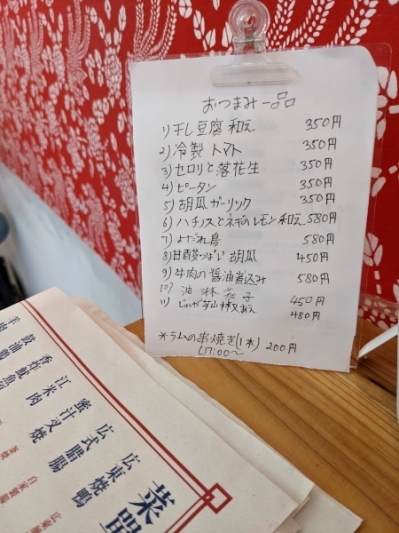 おつまみ一品
1) 干し豆腐和え 350円
2) 冷製トマト 350円
3) セロリと落花生 350円
4) ピータン 350円
5) 胡瓜ガーリック 350円
6) ハチノスとネギのレモン和え 580円
7) よだれ鳥 580円
8) 甘酢っぱい胡瓜 450円
9) 牛肉の醤油煮込み 580円
10) 油淋茄子 450円
11) 480円
※ラムの串焼き(1本) 200円
(17:00〜
菜
広東焼鴨
広式腊腸
蜜汁叉焼
江米肉
香炸魷魚
豉油鶏